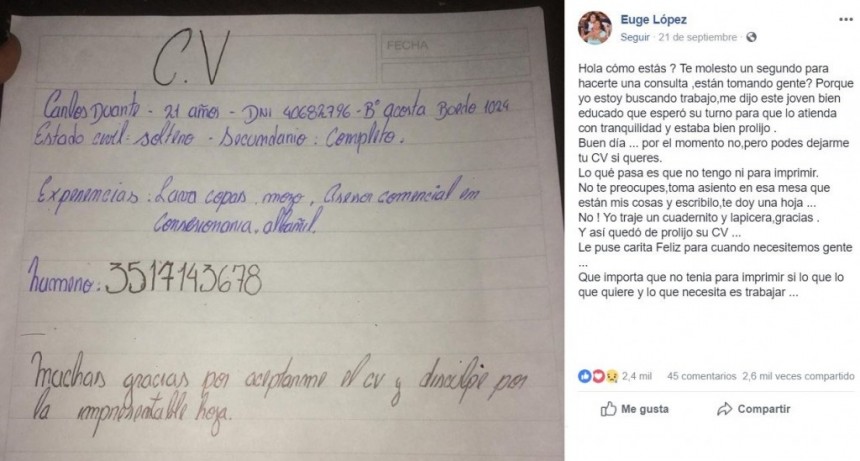 C.V
FECHA
Carlos Duarte - 21 años - DNI 40682796 - B° acosta Boedo 1024
Estado civil: soltero - Secundario: Completo.
Experiencias: Lava copas, mozo, Asesor comercial en
Consesionaria, albañil.
humero: 3517143678
Muchas gracias por aceptarme el cv y disculpe por
la impresentable hoja.
Euge López
Seguir · 21 de septiembre ·
Hola cómo estás ? Te molesto un segundo para
hacerte una consulta ,están tomando gente? Porque
yo estoy buscando trabajo,me dijo este joven bien
educado que esperó su turno para que lo atienda
con tranquilidad y estaba bien prolijo .
Buen día ... por el momento no,pero podes dejarme
tu CV si queres.
Lo qué pasa es que no tengo ni para imprimir.
No te preocupes,toma asiento en esa mesa que
están mis cosas y escribilo,te doy una hoja ...
No ! Yo traje un cuadernito y lapicera,gracias .
Y así quedó de prolijo su CV ...
Le puse carita Feliz para cuando necesitemos gente
...
Que importa que no tenia para imprimir si lo que lo
que quiere y lo que necesita es trabajar ...
2,4 mil 45 comentarios 2,6 mil veces compartido
Me gusta Compartir